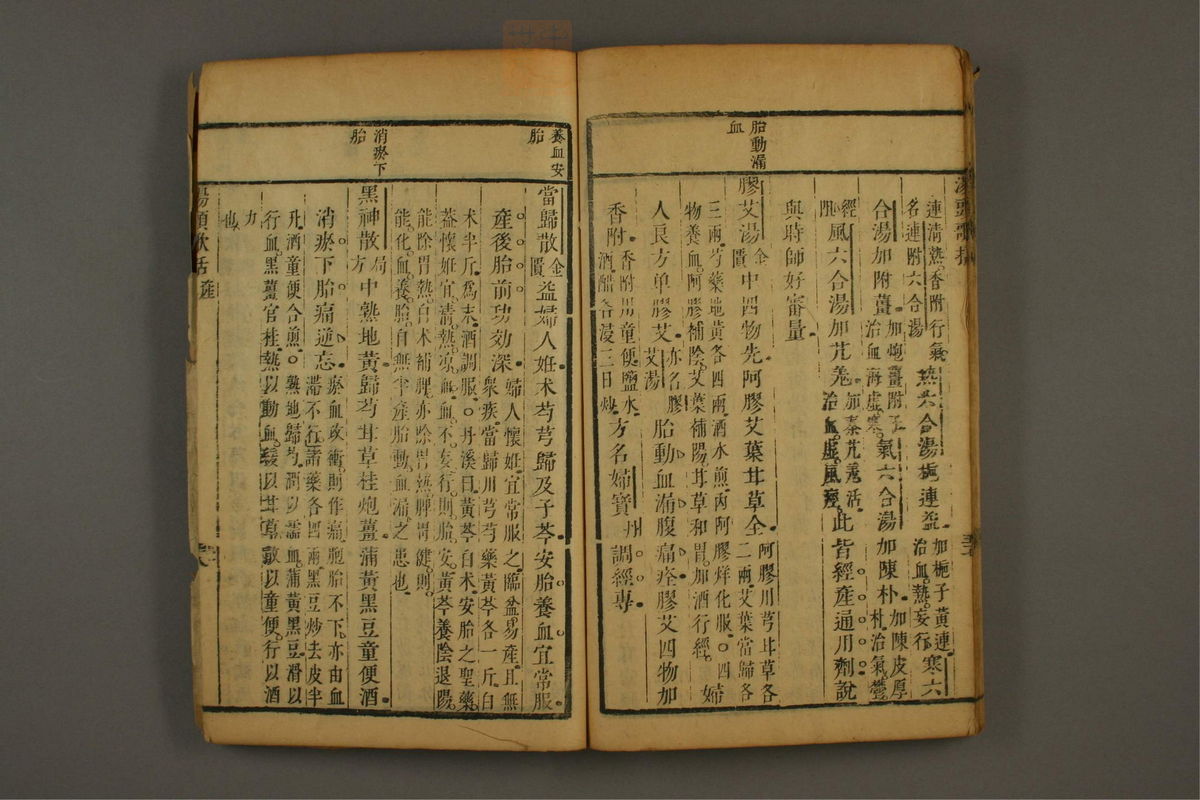 湯頭歌括
胎動漏
血
連清熱。香附行氣
名連附六合湯
熱六合湯梔連益
加梔子黃連
治血熱妄行
寒六
合湯加附薑
加炮薑附子
治血海虛寒
氣六合湯加陳朴
加陳皮厚
朴治氣鬱
經
阻
風六合湯加艽羌
加秦艽羌活
治血虛風痙
此皆經產通用劑說
與時師好審量
膠艾湯
金
匱
中四物先阿膠艾葉甘草全
阿膠川芎甘草各
二兩艾葉當歸各
三兩芍藥地黃各四兩酒水煎內阿膠烊化服○四
物養血阿膠補陰艾葉補陽甘草和胃加酒行經
婦
人良方單膠艾
亦名膠
艾湯
胎動血漏腹痛痊膠艾四物加
香附
香附用童便鹽水
酒醋各浸三日炒
方名婦寶
調經專
養血安
胎
消瘀下
胎
當歸散
金
匱
益婦人姙朮芍芎歸及子芩安胎養血宜常服
產後胎前功效深
婦人懷姙宜常服之臨盆易產且無
眾疾當歸川芎芍藥黃芩各一斤白
朮半斤為末酒調服○丹溪曰黃芩白朮安胎之聖藥
葢懷姙宜清熱涼血血不妄行則胎安黃芩養陰退陽
能除胃熱白朮補脾亦除胃熱脾胃健則
能化血養胎自無半產胎動血漏之患也
黑神散
局
方
中熟地黃歸芍甘草桂炮薑蒲黃黑豆童便酒
消瘀下胎痛逆忘
瘀血攻衝則作痛胞胎不下亦由血
滯不行諸藥各四兩黑豆炒去皮半
升酒童便合煎○熟地歸芍潤以濡血蒲黃黑豆滑以
行血黑薑官桂熱以動血緩以甘草散以童便行以酒
力
也
湯頭歌括 產